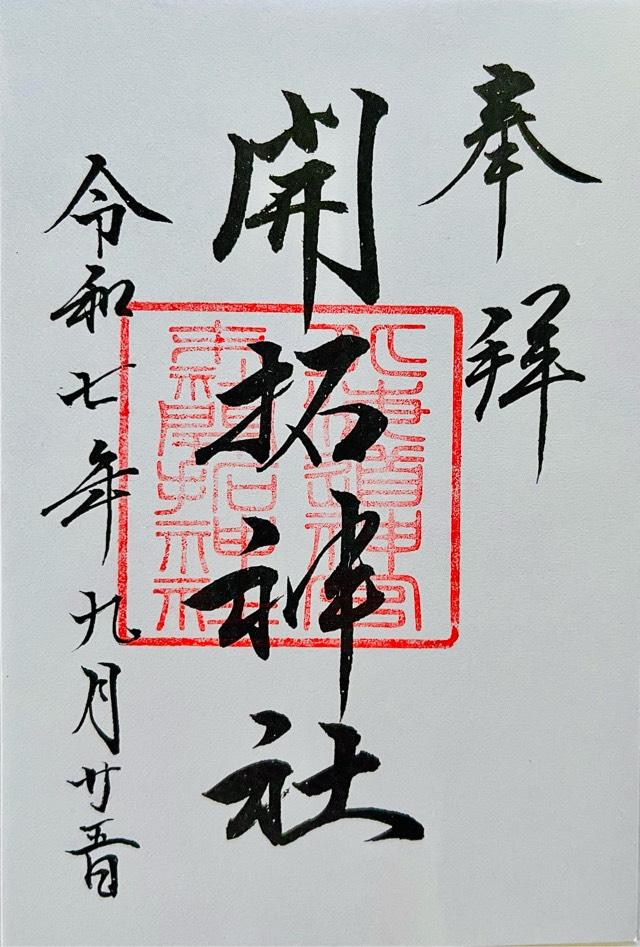 奉拝
開拓神社
北海道神宮
末社開拓神社
令和七年九月廿五日